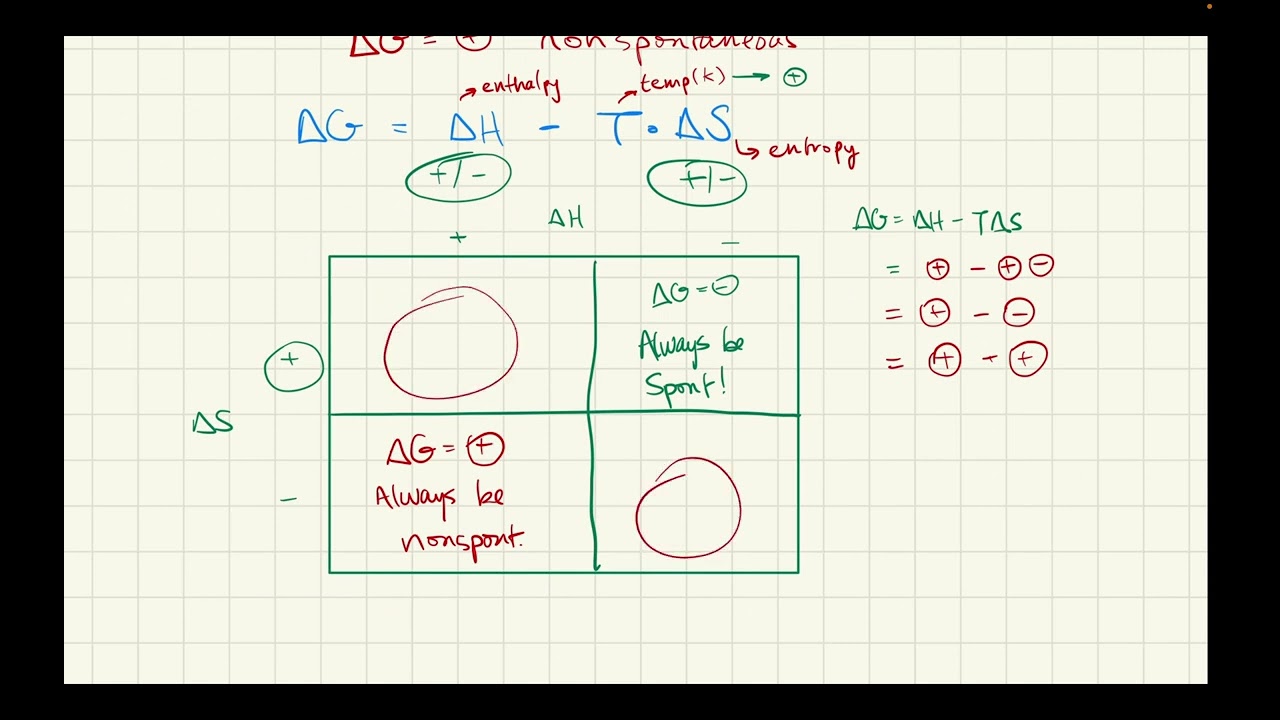 ΔG = ⊕ nonspontaneous
enthalpy
temp(K) → ⊕
ΔG = ΔH - T • ΔS
entropy
+/-
+/-
ΔH
+
-
ΔG = ΔH - TΔS
= ⊕ - ⊕ ⊖
= ⊕ - ⊖
= ⊕ + ⊕
+
ΔG = ⊖
Always be
Spont!
ΔS
-
ΔG = ⊕
Always be
nonspont.